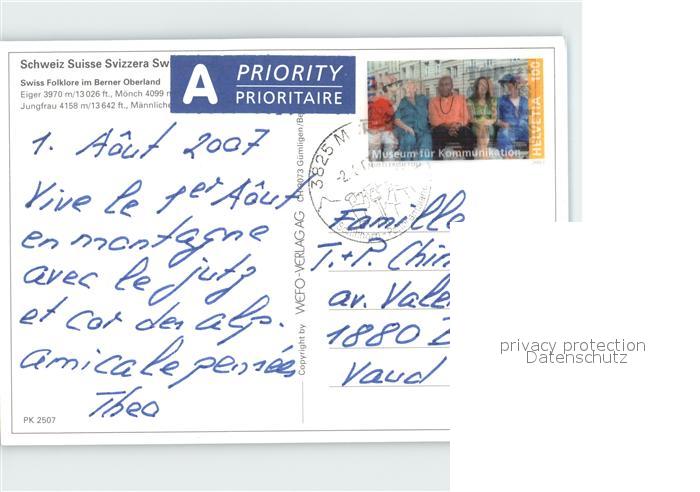 Schweiz Suisse Svizzera
Swiss Folklore im Berner Oberland
Eiger 3970 m/13026 ft., Mönch 4099 m
Jungfrau 4158 m/13642 ft., Männliche
A PRIORITY
PRIORITAIRE
HELVETIA 100
Museum für Kommunikation
3825 M
1. Aôut 2007
Vive le 1er Aôut
en montagne
avec le jutz
et cor des alp.
amicale pensées
Theo
PK 2507
Copyright by WEFO-VERLAG AG CH-3073 Gümligen/Be
Famille
T.+P. Chin
av. Vale
1880
Vaud
privacy protection
Datenschutz